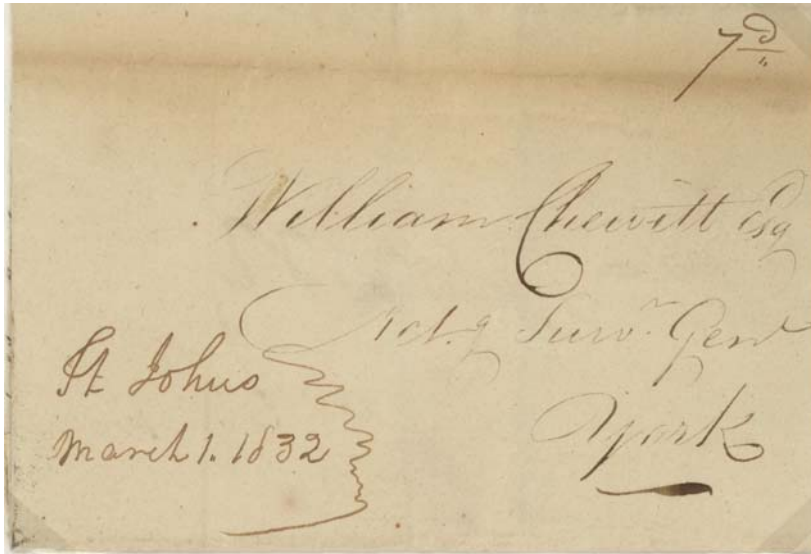 7d
William Chewitt Esq
Act.g Survr. Genl
York
St Johns
March 1. 1832